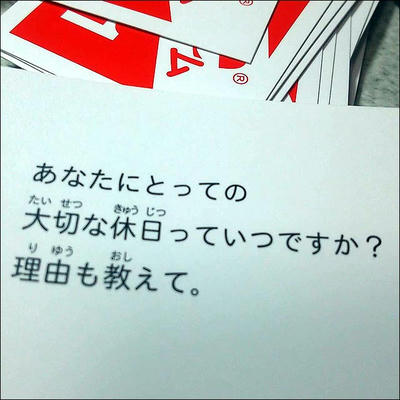 あなたにとっての
大切な休日っていつですか？
理由も教えて。
たい せつ
きゅう じつ
り ゆう
おし
1
®
®